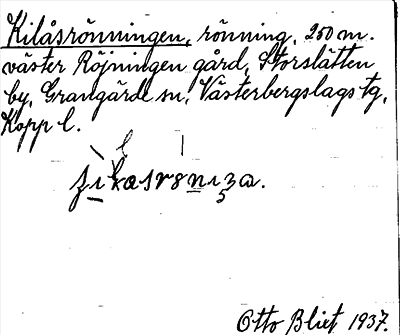 Kilåsrönningen, rönning, 250 m.
väster Röjningen gård, Storslätten
by, Grangärde sn, Västerbergslags tg,
Kopp. l.
Otto Blixt 1937.